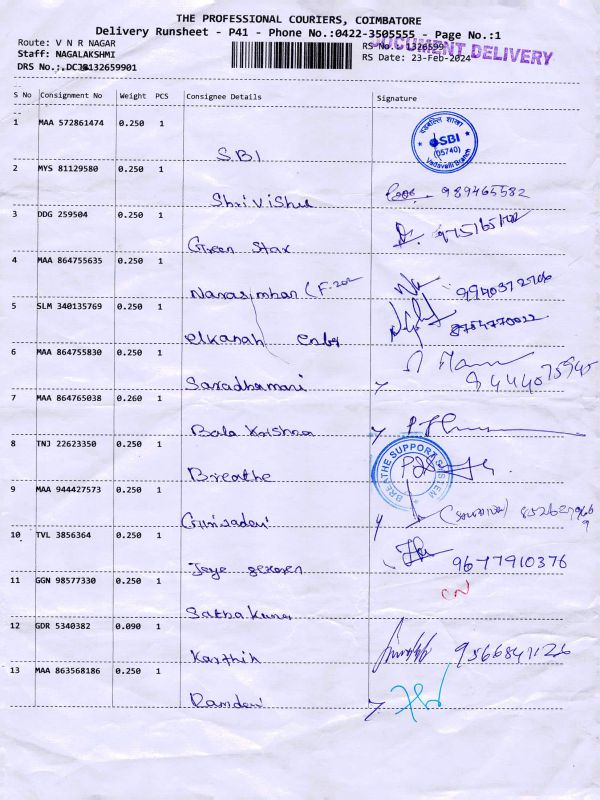 THE PROFESSIONAL COURIERS, COIMBATORE
Delivery Runsheet - P41 - Phone No.:0422-3505555 - Page No.:1
Route: V N R NAGAR
RS No.: 1326599
DOCUMENT DELIVERY
Staff: NAGALAKSHMI
RS Date: 23-Feb-2024
DRS No.:
S No Consignment No Weight PCS Consignee Details Signature
1 MAA 572861474 0.250 1
S.B.I
SBI
(05740)
Vadavalli Branch
2 MYS 81129580 0.250 1
Shri Vishnu
989465582
3 DDG 259504 0.250 1
Green Star
4 MAA 864755635 0.250 1
Narasimhan (F-202
9940372706
5 SLM 340135769 0.250 1
elkanah
8754770022
6 MAA 864755830 0.250 1
Saradhamani
9444075945
7 MAA 864765038 0.260 1
Bala Krishna
8 TNJ 22623350 0.250 1
Breathe
BREATHE SUPPORT SYSTEM
9 MAA 944427573 0.250 1
10 TVL 3856364 0.250 1
Jeye
9677910376
11 GGN 98577330 0.250 1
CN
12 GDR 5340382 0.090 1
Karthik
9566841126
13 MAA 863568186 0.250 1
Ramdevi